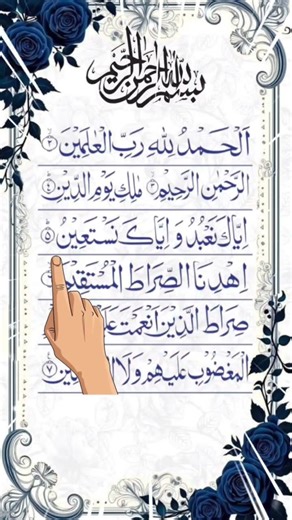 بسم الله الرحمن الرحيم
اَلْحَمْدُ لِلّٰهِ رَبِّ الْعٰلَمِيْنَ ٢
الرَّحْمٰنِ الرَّحِيْمِ ٣ مٰلِكِ يَوْمِ الدِّيْنِ ٤
اِيَّاكَ نَعْبُدُ وَ اِيَّاكَ نَسْتَعِيْنُ ٥
اِهْدِنَا الصِّرَاطَ الْمُسْتَقِيْمَ
صِرَاطَ الَّذِيْنَ اَنْعَمْتَ
الْمَغْضُوْبِ عَلَيْهِمْ وَلَا ٧